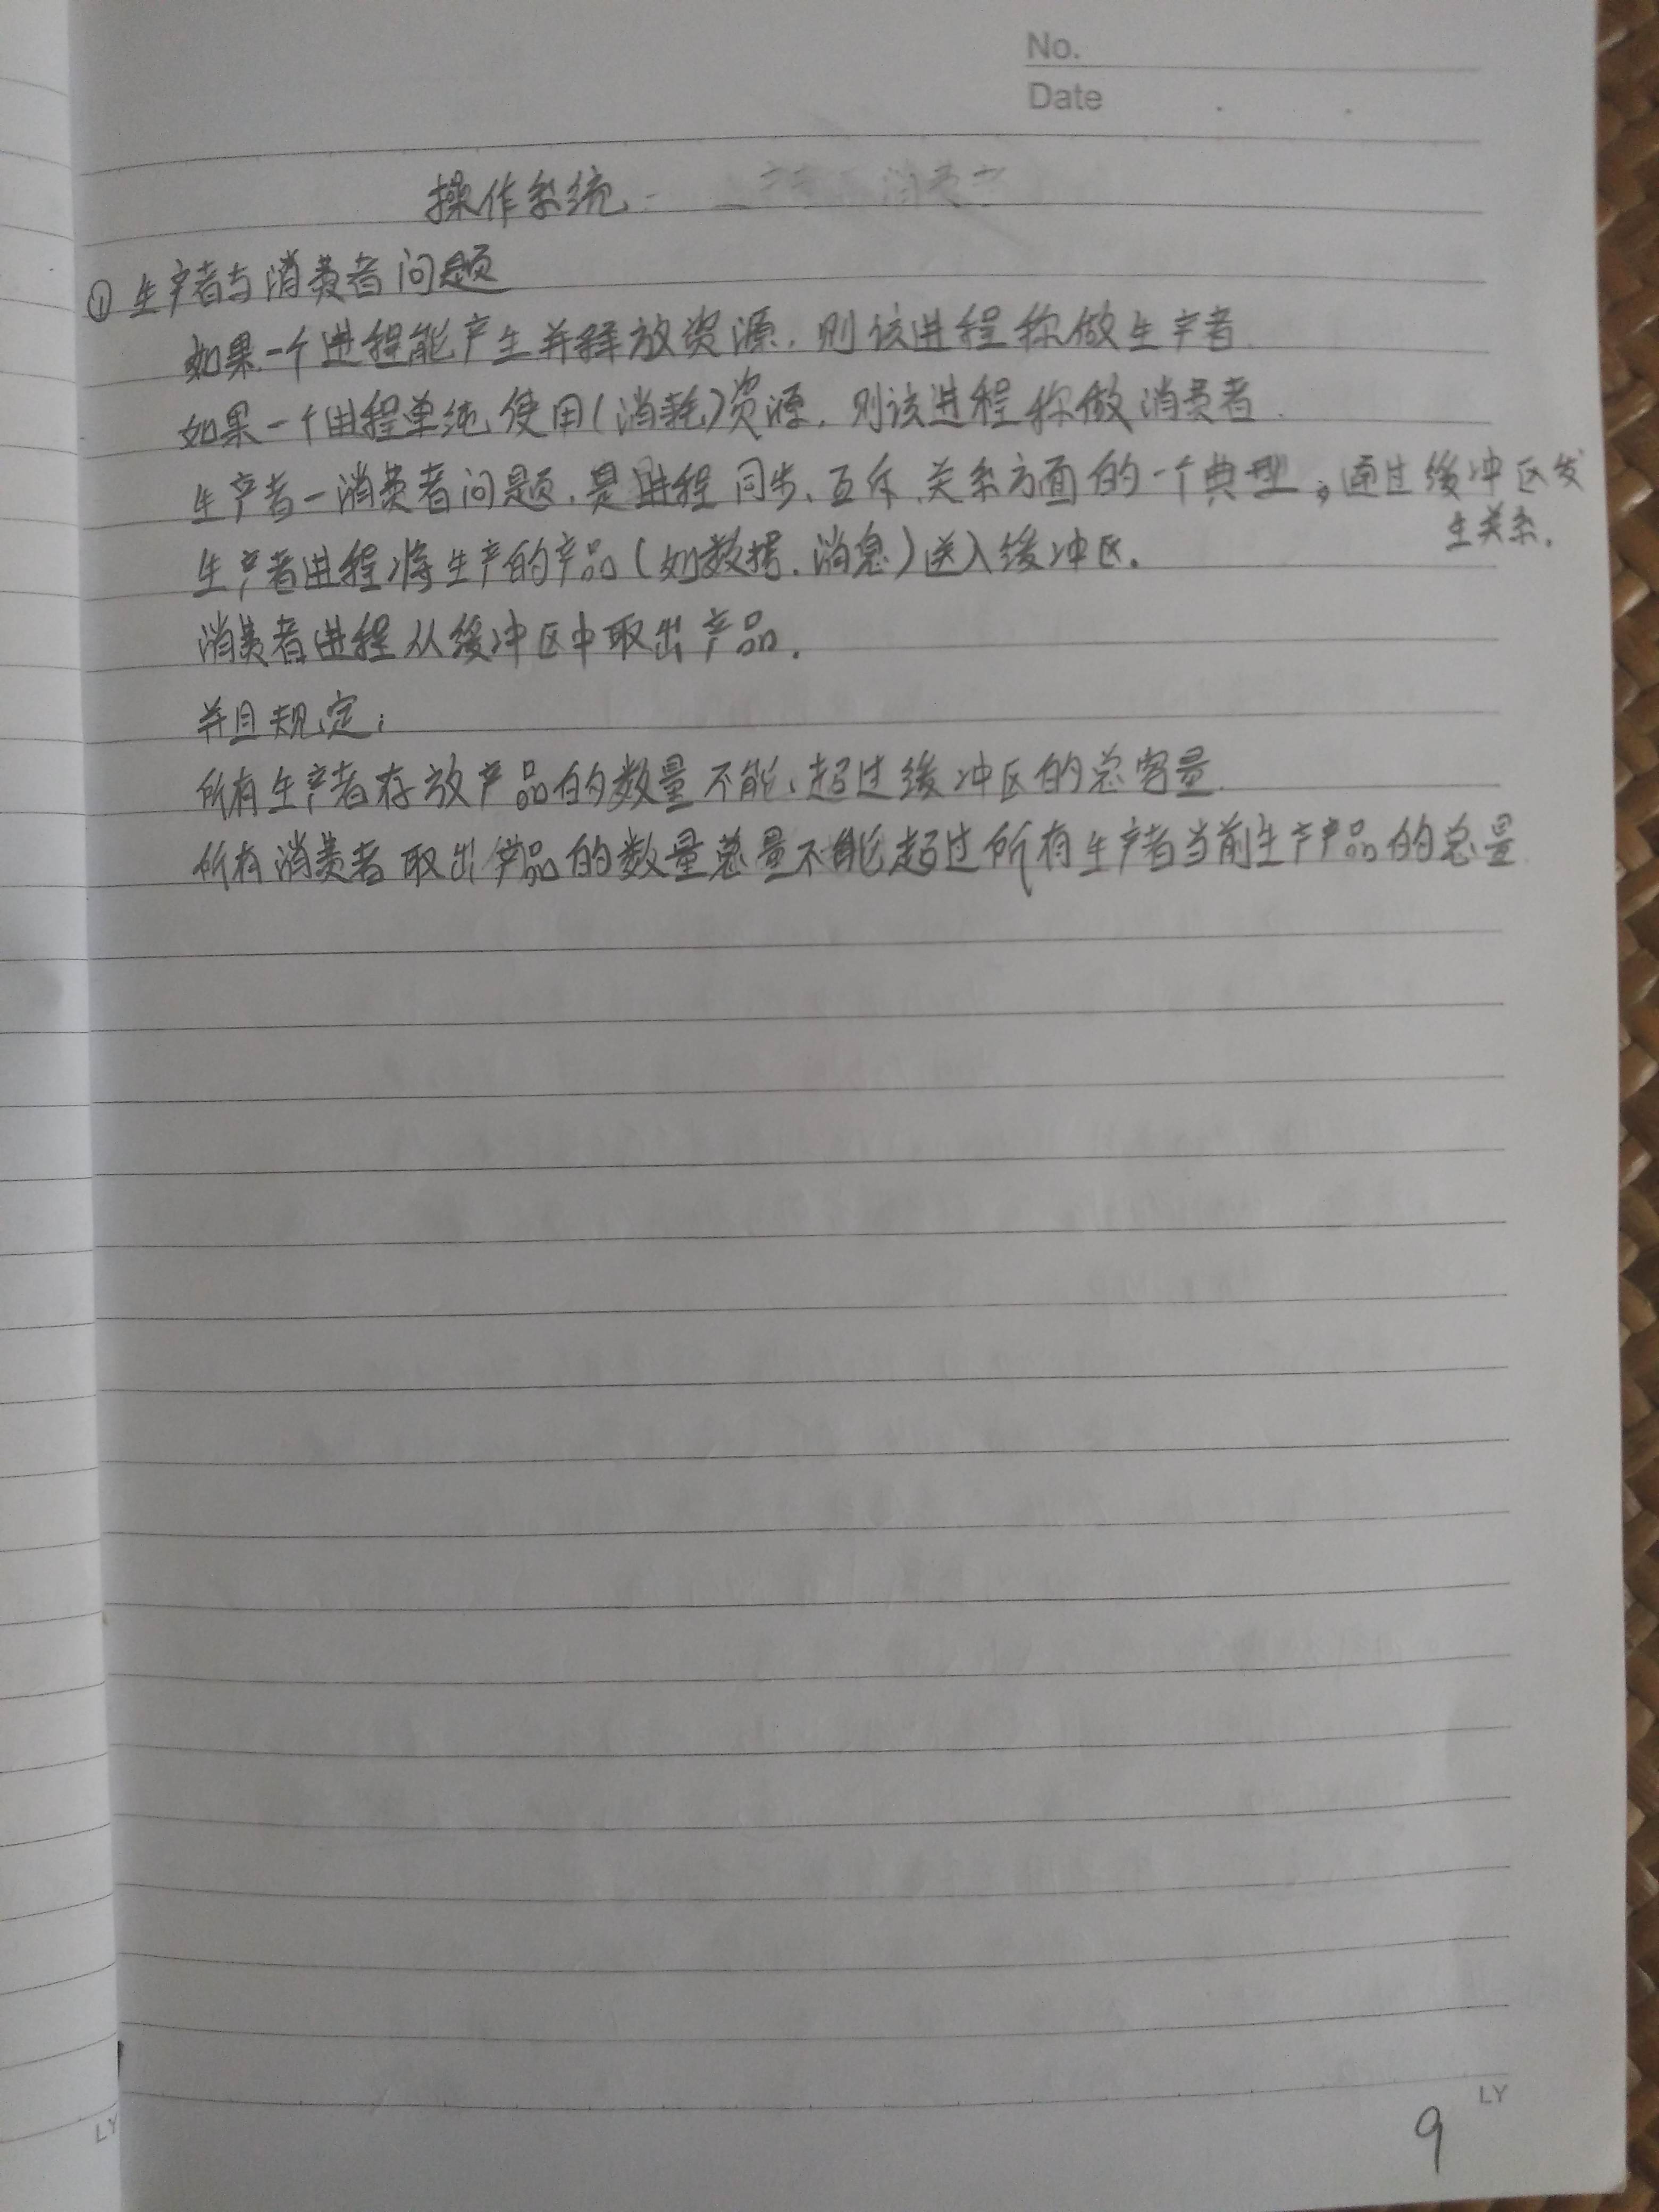 No.
Date
操作系统
① 生产者与消费者问题
如果一个进程能产生并释放资源,则该进程称做生产者.
如果一个进程单纯使用(消耗)资源,则该进程称做消费者.
生产者-消费者问题,是进程同步、互斥、关系方面的一个典型,通过缓冲区发
生关系.
生产者进程将生产的产品(如数据、消息)送入缓冲区.
消费者进程从缓冲区中取出产品.
并且规定:
所有生产者存放产品的数量不能超过缓冲区的总容量.
所有消费者取出产品的数量总量不能超过所有生产者当前生产产品的总量
LY
LY
9